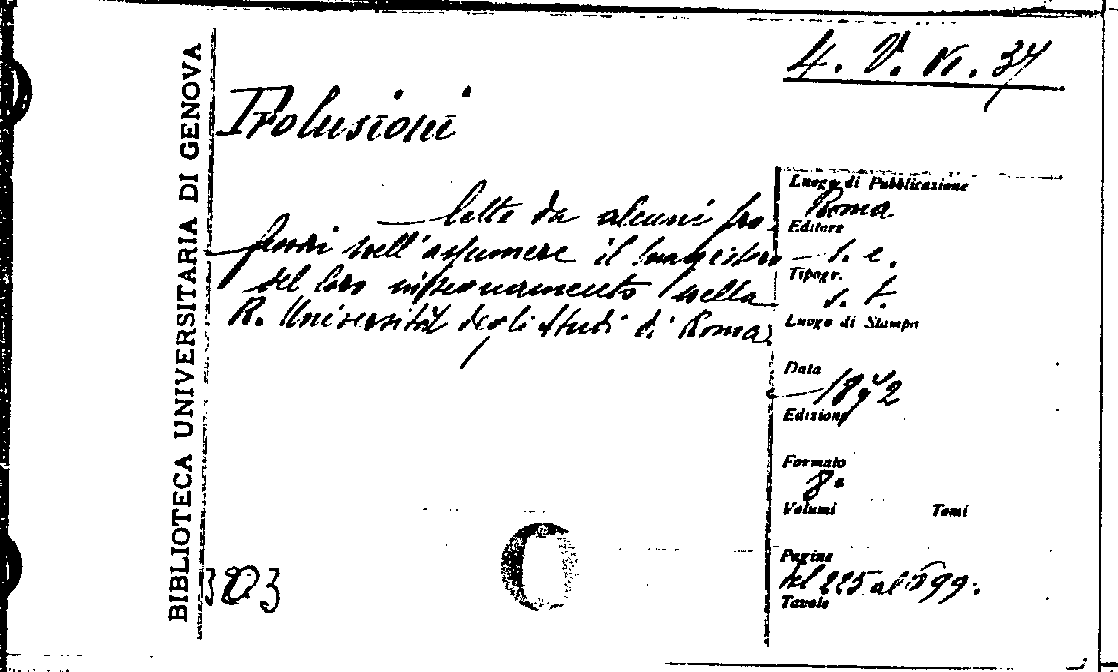 4. V. VI. 37
Prolusioni
lette da alcuni pro
fessori nell'assumere il magistero
del loro insegnamento nella
R. Università degli Studi di Roma
BIBLIOTECA UNIVERSITARIA DI GENOVA
Luogo di Pubblicazione
Roma
Editore
s. e.
Tipogr.
s. t.
Luogo di Stampa
Data
1872
Edizione
Formato
8°
Volumi Tomi
Pagine
al 599.
Tavole